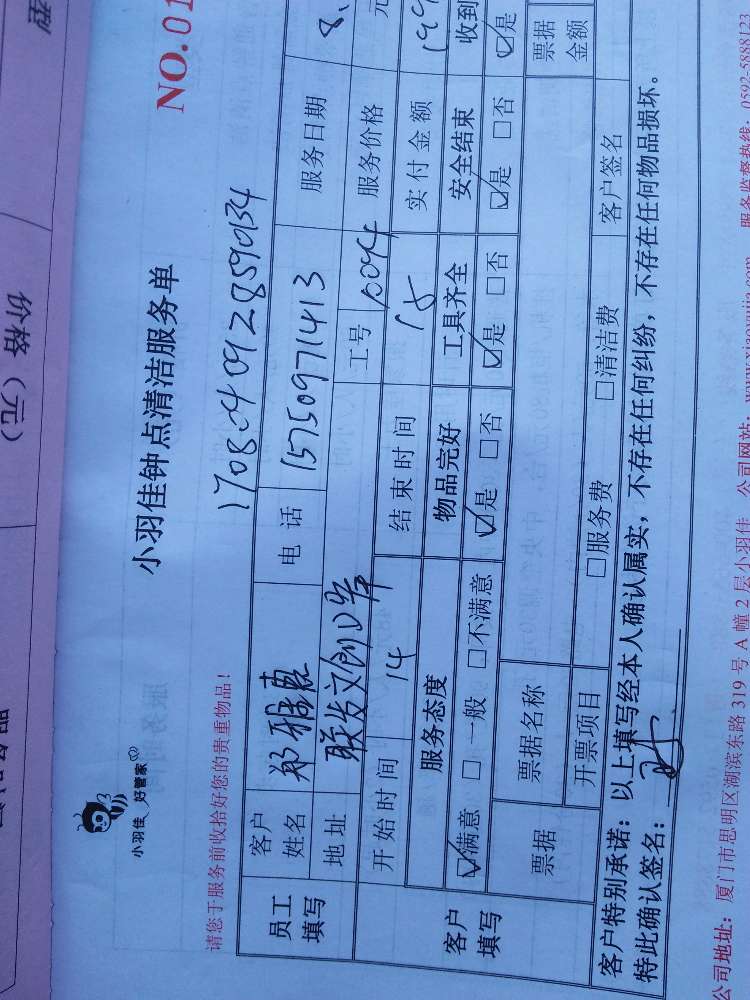 型
价格（元）
NO.01
小羽佳 好管家
小羽佳钟点清洁服务单
请您于服务前收拾好您的贵重物品！
1708040928590134
员工填写 客户姓名 郑雅惠 电话 15750971413 服务日期 8.
地址 联发文创口岸 工号 10094 服务价格 元
客户填写 开始时间 14 结束时间 15 实付金额 199
服务态度 物品完好 工具齐全 安全结束 收到
☑满意 □一般 □不满意 ☑是 □否 ☑是 □否 ☑是 □否 ☑是
票据 票据名称 票据金额
开票项目 □服务费 □清洁费 客户签名
客户特别承诺：以上填写经本人确认属实，不存在任何纠纷，不存在任何物品损坏。
特此确认签名：
公司地址：厦门市思明区湖滨东路319号A幢2层小羽佳 公司网站： 服务监督热线：0592-5888123